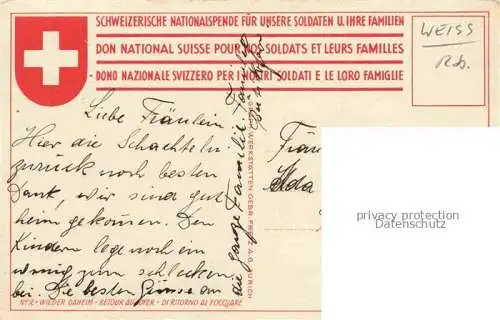 SCHWEIZERISCHE NATIONALSPENDE FÜR UNSERE SOLDATEN U. IHRE FAMILIEN
DON NATIONAL SUISSE POUR NOS SOLDATS ET LEURS FAMILLES
DONO NAZIONALE SVIZZERO PER I NOSTRI SOLDATI E LE LORO FAMIGLIE
WEISS
Rb.
Liebe Fräulein
Hier die Schachteln
zurück noch besten
Dank, wir sind gut
heim gekommen. Den
Kindern lege noch ein
wenig zum schlecken
bei. Die besten Grüsse an
die ganze Familie Familie
GRAPH. WERKSTÄTTEN GEBR. FRETZ A.G. ZÜRICH
Fräu
Ida
privacy protection
Datenschutz
Nr. 2 - WIEDER DAHEIM - RETOUR AU FOYER - DI RITORNO AL FOCOLARE